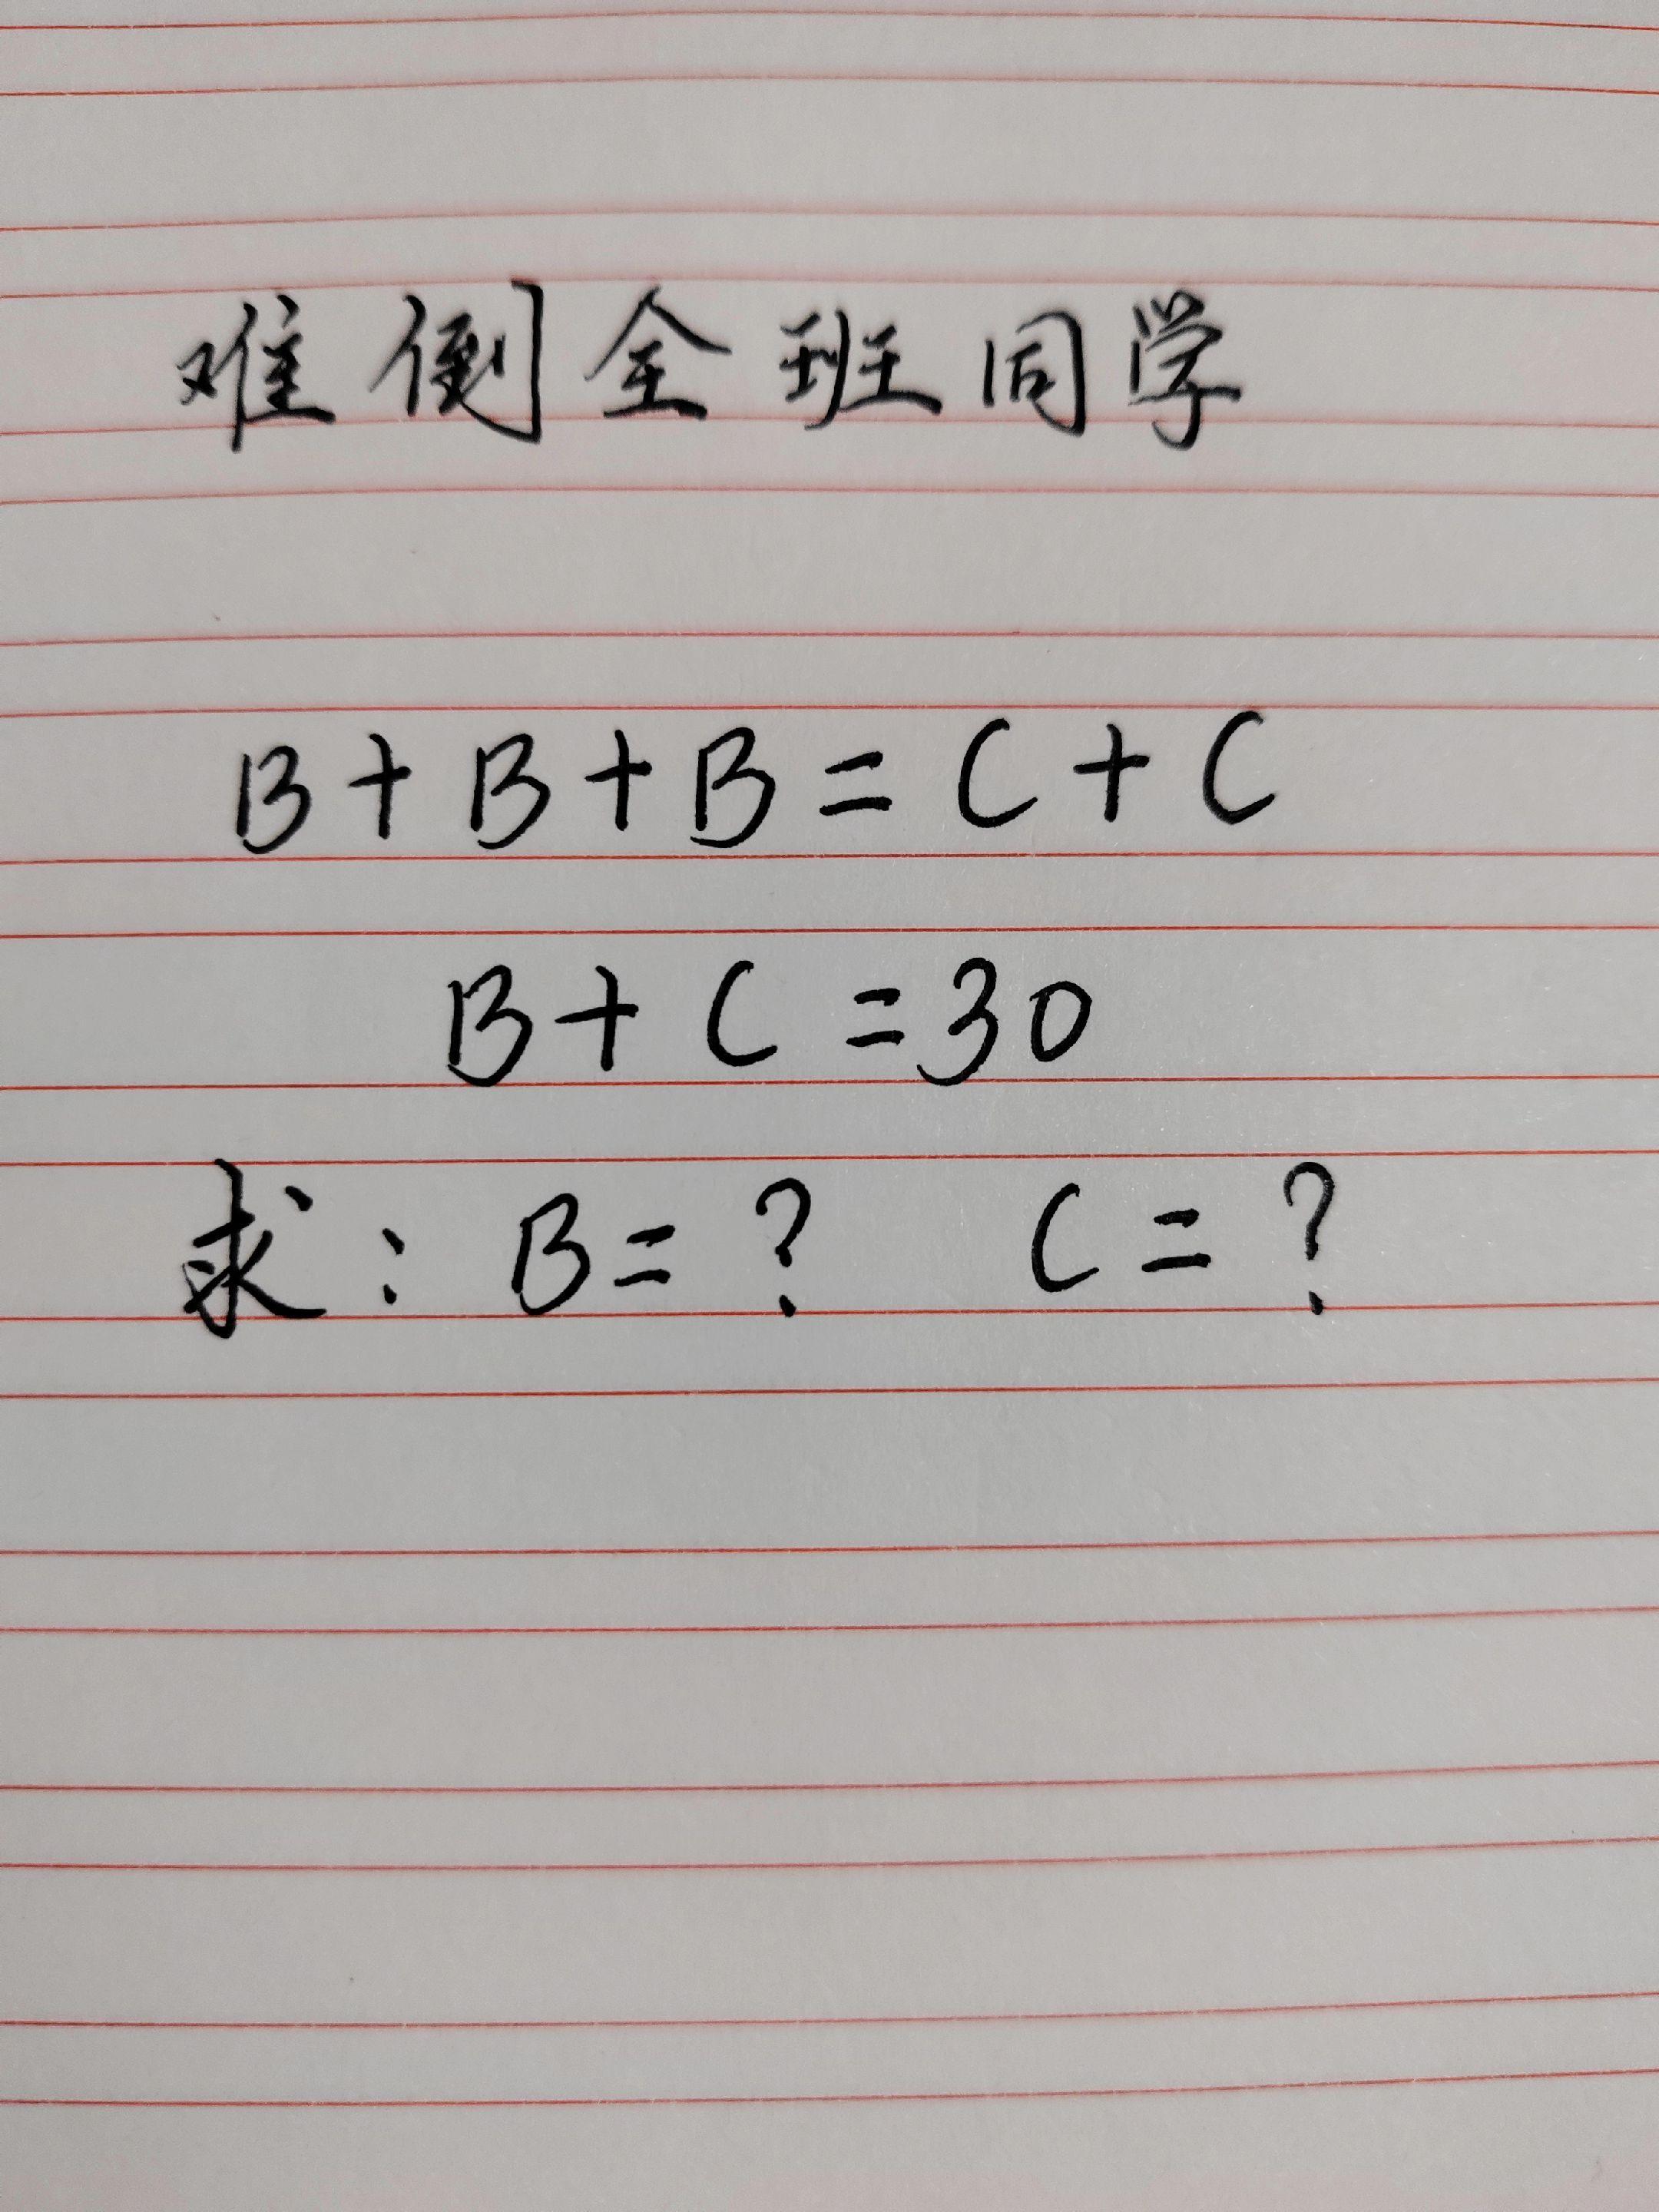 难倒全班同学
B+B+B=C+C
B+C=30
求:B=? C=?